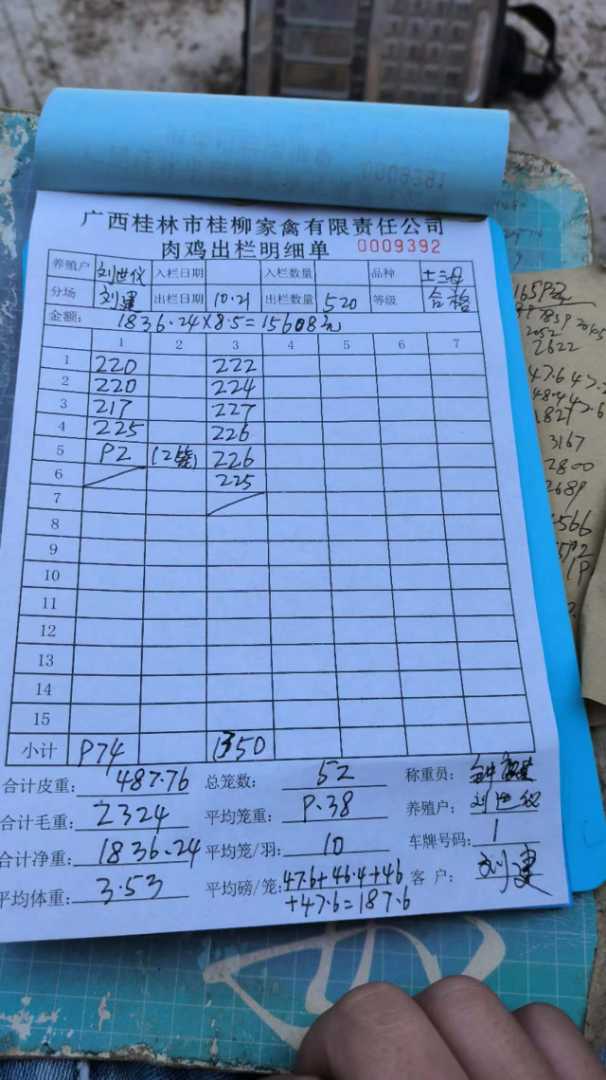 广西桂林市桂柳家禽有限责任公司
肉鸡出栏明细单 0009392
养殖户 刘世仪 入栏日期 入栏数量 品种 土三母
分场 刘建 出栏日期 10.21 出栏数量 520 等级 合格
金额: 1836.24×8.5=15608元
1 2 3 4 5 6 7
1 220 222
2 220 224
3 217 227
4 225 226
5 92 (2笼) 226
6 225
7
8
9
10
11
12
13
14
15
小计 974 1350
合计皮重: 487.76 总笼数: 52 称重员:
合计毛重: 2324 平均笼重: 9.38 养殖户: 刘世仪
合计净重: 1836.24 平均笼/羽: 10 车牌号码: 1
平均体重: 3.53 平均磅/笼: 47.6+46.4+46 客户: 刘建
+47.6=187.6
2622
3167
2800
2689